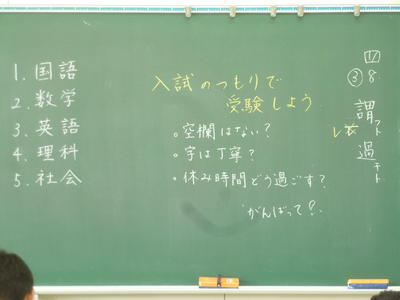 1. 国語
2. 数学
3. 英語
4. 理科
5. 社会
入試のつもりで
受験しよう
空欄はない?
字は丁寧?
休み時間どう過ごす?
がんばって?
17
③ 8
謂
過